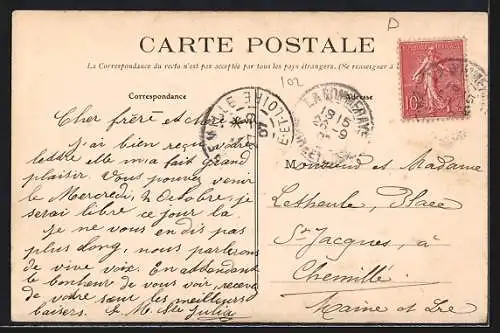 D
CARTE POSTALE
La Correspondance du recto n'est pas acceptée par tous les pays étrangers. (Se renseigner à
102
Correspondance
Adresse
Cher frère et
J'ai bien reçu votre
lettre elle m'a fait grand
plaisir. Vous pouvez venir
le Mercredi, 2 Octobre, je
serai libre ce jour là.
Je ne vous en dis pas
plus long, nous parlerons
de vive voix. En attendant
le bonheur de vous voir, recevez
de votre sœur les meilleurs
baisers. Julia
Monsieur et Madame
Place
St Jacques, à
Chemillé.
Maine et Lre
10
LOIRE
LA POMMERAYE